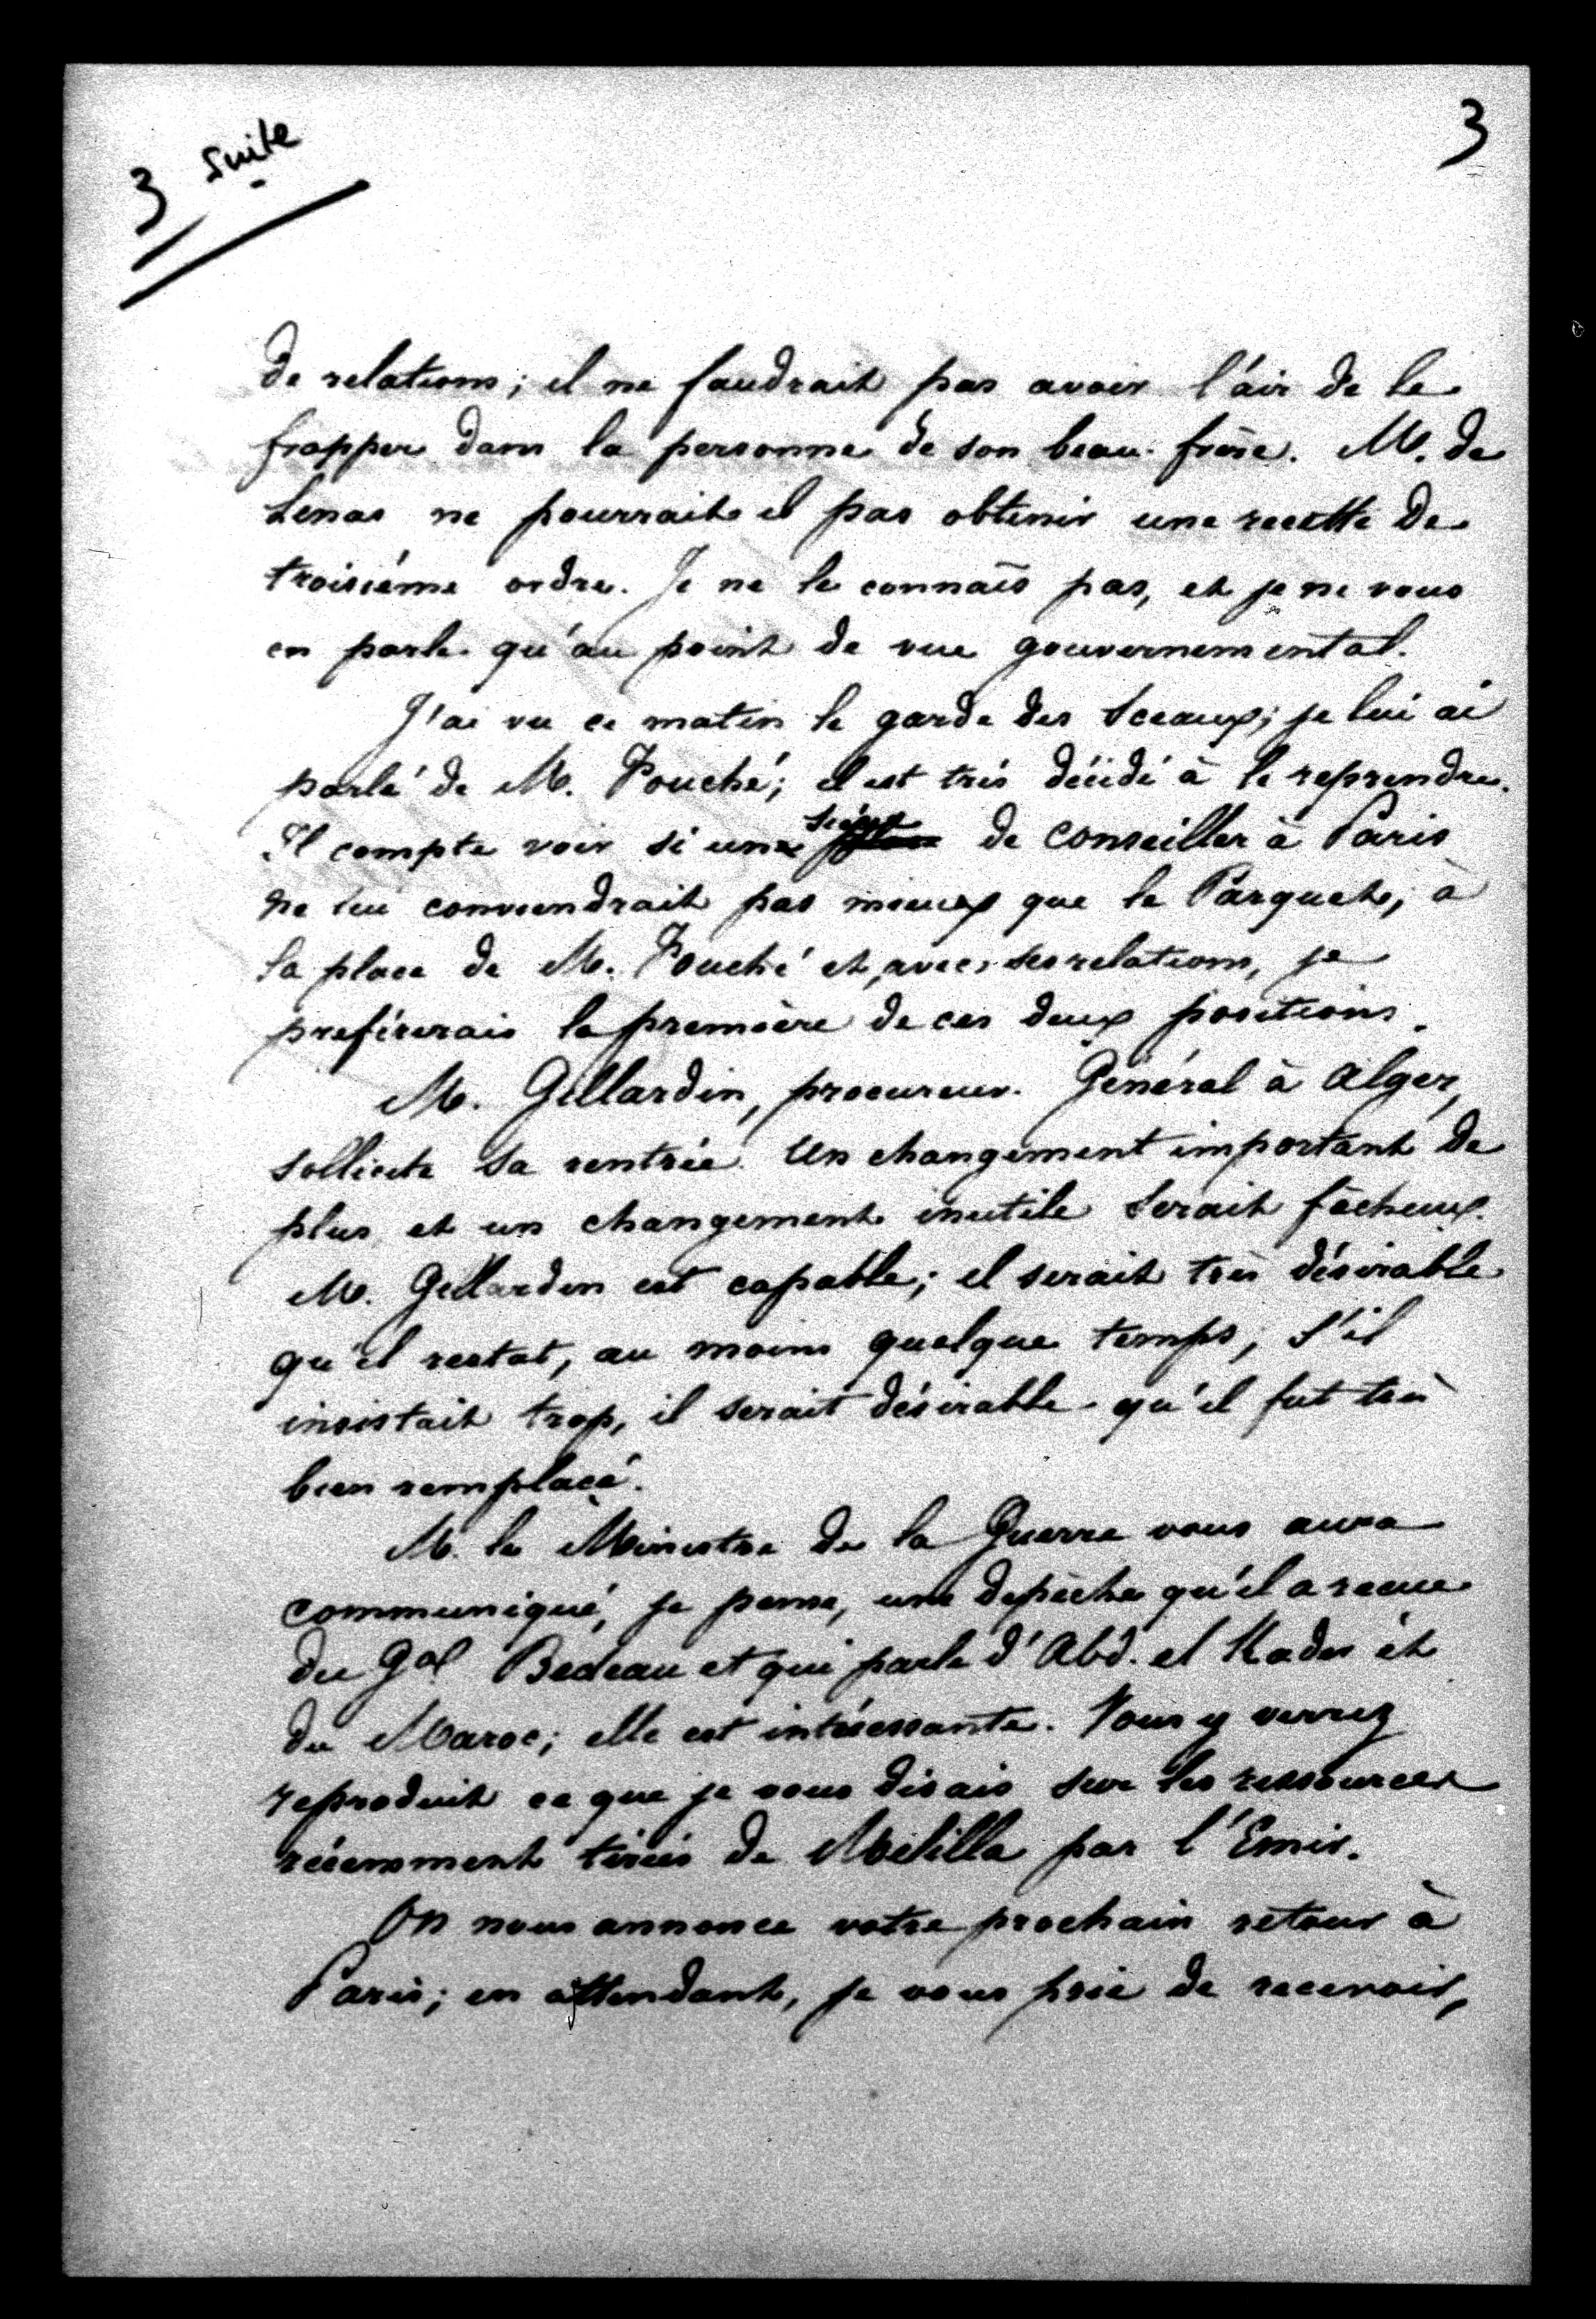 3 suite
3
de relations; il ne faudrait pas avoir l'air de le
frapper dans la personne de son beau-frère. M. de
Lenas ne pourrait il pas obtenir une recette de
troisiéme ordre. Je ne le connais pas, et je ne vous
en parle qu'au point de vue gouvernemental.
J'ai vu ce matin le garde des Sceaux; je lui ai
parlé de M. Fouché; il est très décidé à le reprendre.
Il compte voir si un siège de conseiller à Paris
ne lui conviendrait pas mieux que le Parquet; à
la place de M. Fouché et, avec ses relations, je
prefèrerais la première de ces deux positions.
M. Gillardin, procureur Général à Alger,
sollicite sa rentrée. Un changement important de
plus et un changement inutile serait fâcheux.
M. Gillardin est capable; il serait très désirable
qu'il restat, au moins quelque temps; s'il
insistait trop, il serait désirable qu'il fut très
bien remplacé.
M. le Ministre de la Guerre vous aura
communiqué, je pense, une depèche qu'il a recue
du Gal Bedeau et qui parle d'Abd. el Kader et
du Maroc; elle est intéressante. Vous y verrez
reproduit ce que je vous disais sur les ressources
récemment tirées de Melilla par l'Emir.
On nous annonce votre prochain retour à
Paris; en attendant, je vous prie de recevoir,